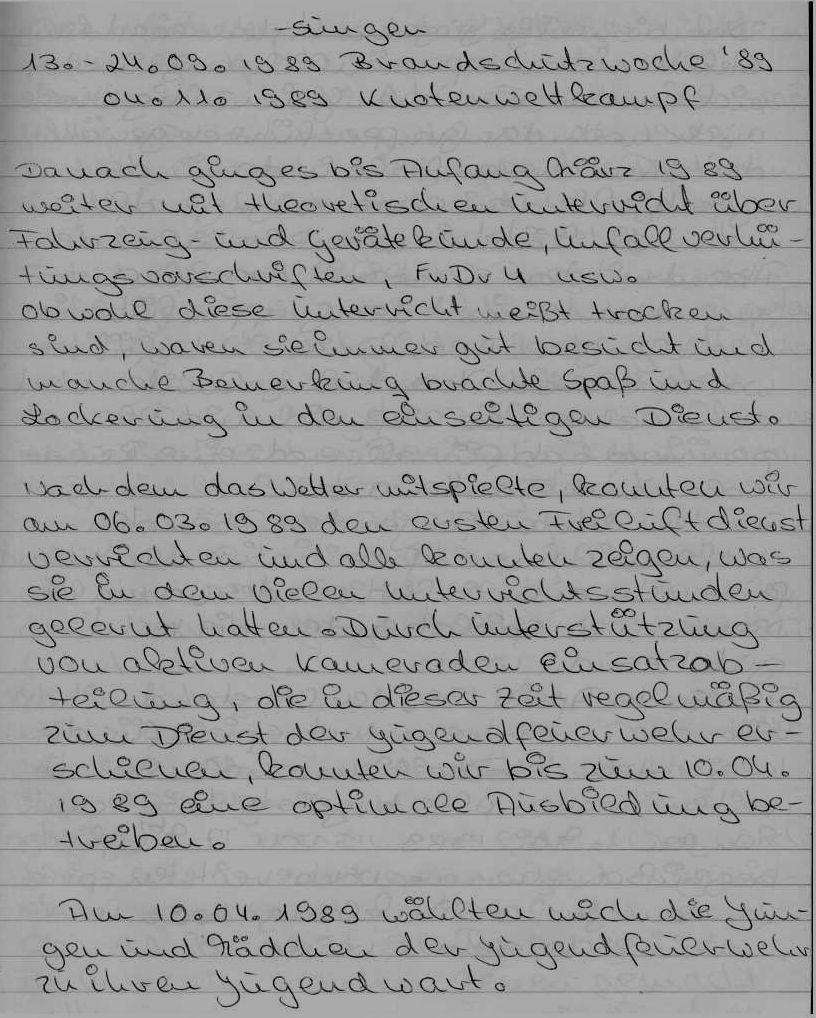 -singen
13.-24.09.1989 Brandschutzwoche '89
04.11.1989 Knotenwettkampf
Danach ging es bis Anfang März 1989
weiter mit theoretischen Unterricht über
Fahrzeug- und Gerätekunde, Unfallverhü-
tungsvorschriften, FwDv 4 usw.
obwohl diese Unterricht meißt trocken
sind, waren sie immer gut besucht und
manche Bemerkung brachte Spaß und
Lockerung in den einseitigen Dienst.
Nachdem das Wetter mitspielte, konnten wir
am 06.03.1989 den ersten Freiluftdienst
verrichten und alle konnten zeigen, was
sie in den vielen Unterrichtsstunden
gelernt hatten. Durch Unterstützung
von aktiven Kameraden Einsatzab-
teilung, die in dieser Zeit regelmäßig
zum Dienst der Jugendfeuerwehr er-
schienen, konnten wir bis zum 10.04.
1989 eine optimale Ausbildung be-
treiben.
Am 10.04.1989 wählten mich die Jun-
gen und Mädchen der Jugendfeuerwehr
zu ihren Jugendwart.